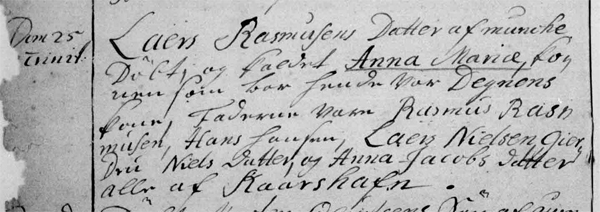 Dom 25
Trinit.
Laers Rasmusens Datter af munche
Döbt, og kaldet Anna Maria, Ko
nen som bar hende var Degnens
kone, Faderne vare Rasmus Ras
musen, Hans Hansen, Laers Nielsen Gier
dru Niels datter, og Anna Jacobs datter
alle af Kaarshafn.